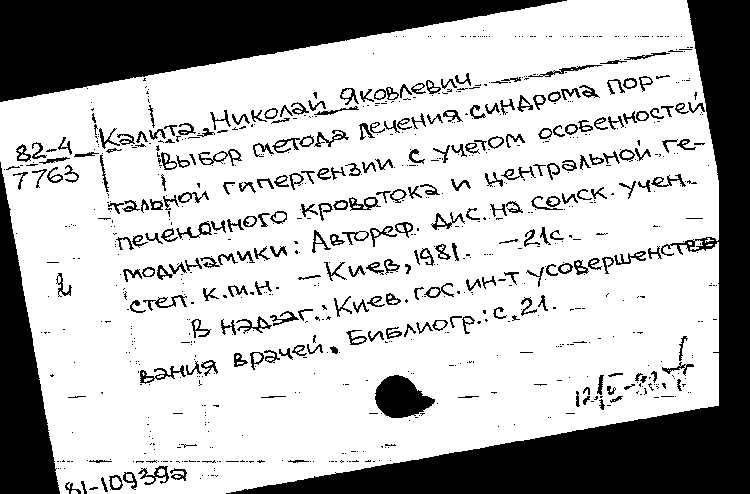 Калита, Николай Яковлевич
82-4
7763
Выбор метода лечения синдрома пор-
тальной гипертензии с учетом особенностей
печеночного кровотока и центральной ге-
модинамики: Автореф. дис. на соиск. учен.
степ. к.м.н. – Киев, 1981. – 21с.
2
В надзаг.: Киев. гос. ин-т усовершенство-
вания врачей. Библиогр.: с. 21.
81-10939а